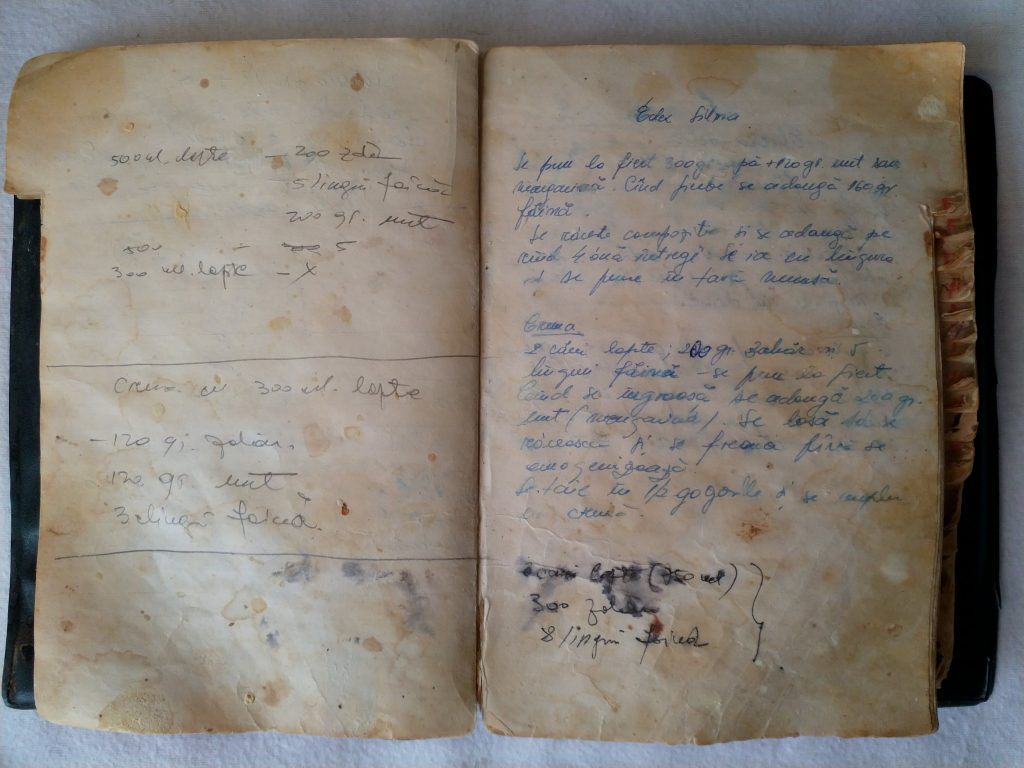 500 ml. lapte - 200 zah
5 linguri făină
200 gr. unt
500 - 5
300 ml. lapte - X
Crema cu 300 ml. lapte
- 120 gr. zahăr
120 gr. unt
3 linguri făină.
Se pun la fiert 300 gr. apă + 120 gr. unt sau
margarină. Cînd fierbe se adaugă 160 gr.
făină.
Se răcește compoziția și se adaugă pe
rînd 4 ouă întregi. Se ia cu lingura
și se pune în tavă
Crema
2 căni lapte; 200 gr. zahăr și 5
linguri făină - se pun la fiert.
Cînd se îngroașă se adaugă 200 gr.
unt (margarină). Se lasă să se
răcească și se freacă pînă se
omogenizează
Se taie în 1/2 gogoșile și se umplu
cu cremă.
lapte (750 ml)
300 zahăr
8 linguri făină